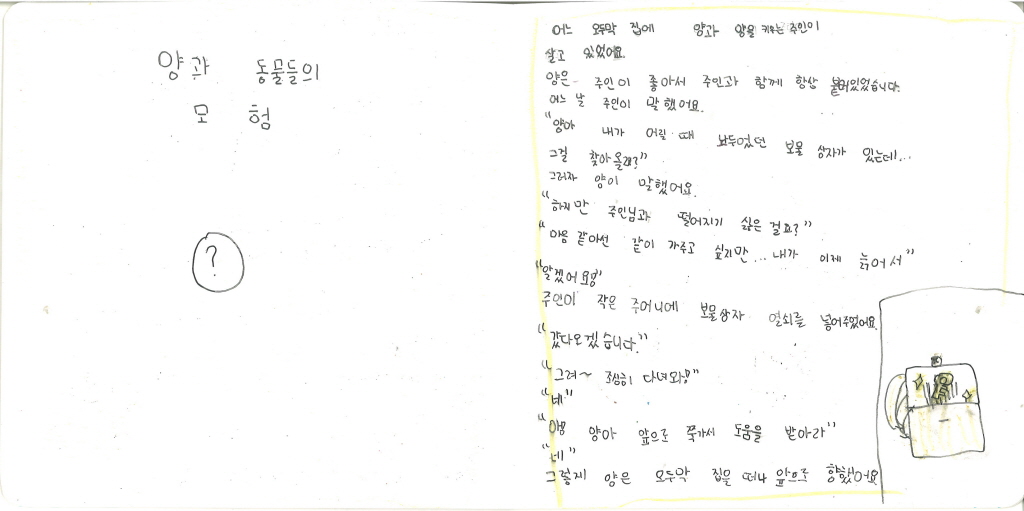 양과 동물들의
모험
?
어느 오두막 집에 양과 양을 키우는 주인이
살고 있었어요.
양은 주인이 좋아서 주인과 함께 항상 붙어있었습니다.
어느 날 주인이 말했어요.
"양아 내가 어릴 때 놔두었던 보물 상자가 있는데...
그걸 찾아올래?"
그러자 양이 말했어요.
"하지만 주인님과 떨어지기 싫은 걸요?"
"마음 같아선 같이 가주고 싶지만... 내가 이제 늙어서"
"알겠어요!"
주인이 작은 주머니에 보물상자 열쇠를 넣어주었어요.
"갔다오겠습니다."
"그려~ 조심히 다녀와!"
"네"
양아 앞으로 쭉가서 도움을 받아라"
"네"
그렇게 양은 오두막 집을 떠나 앞으로 향했어요.